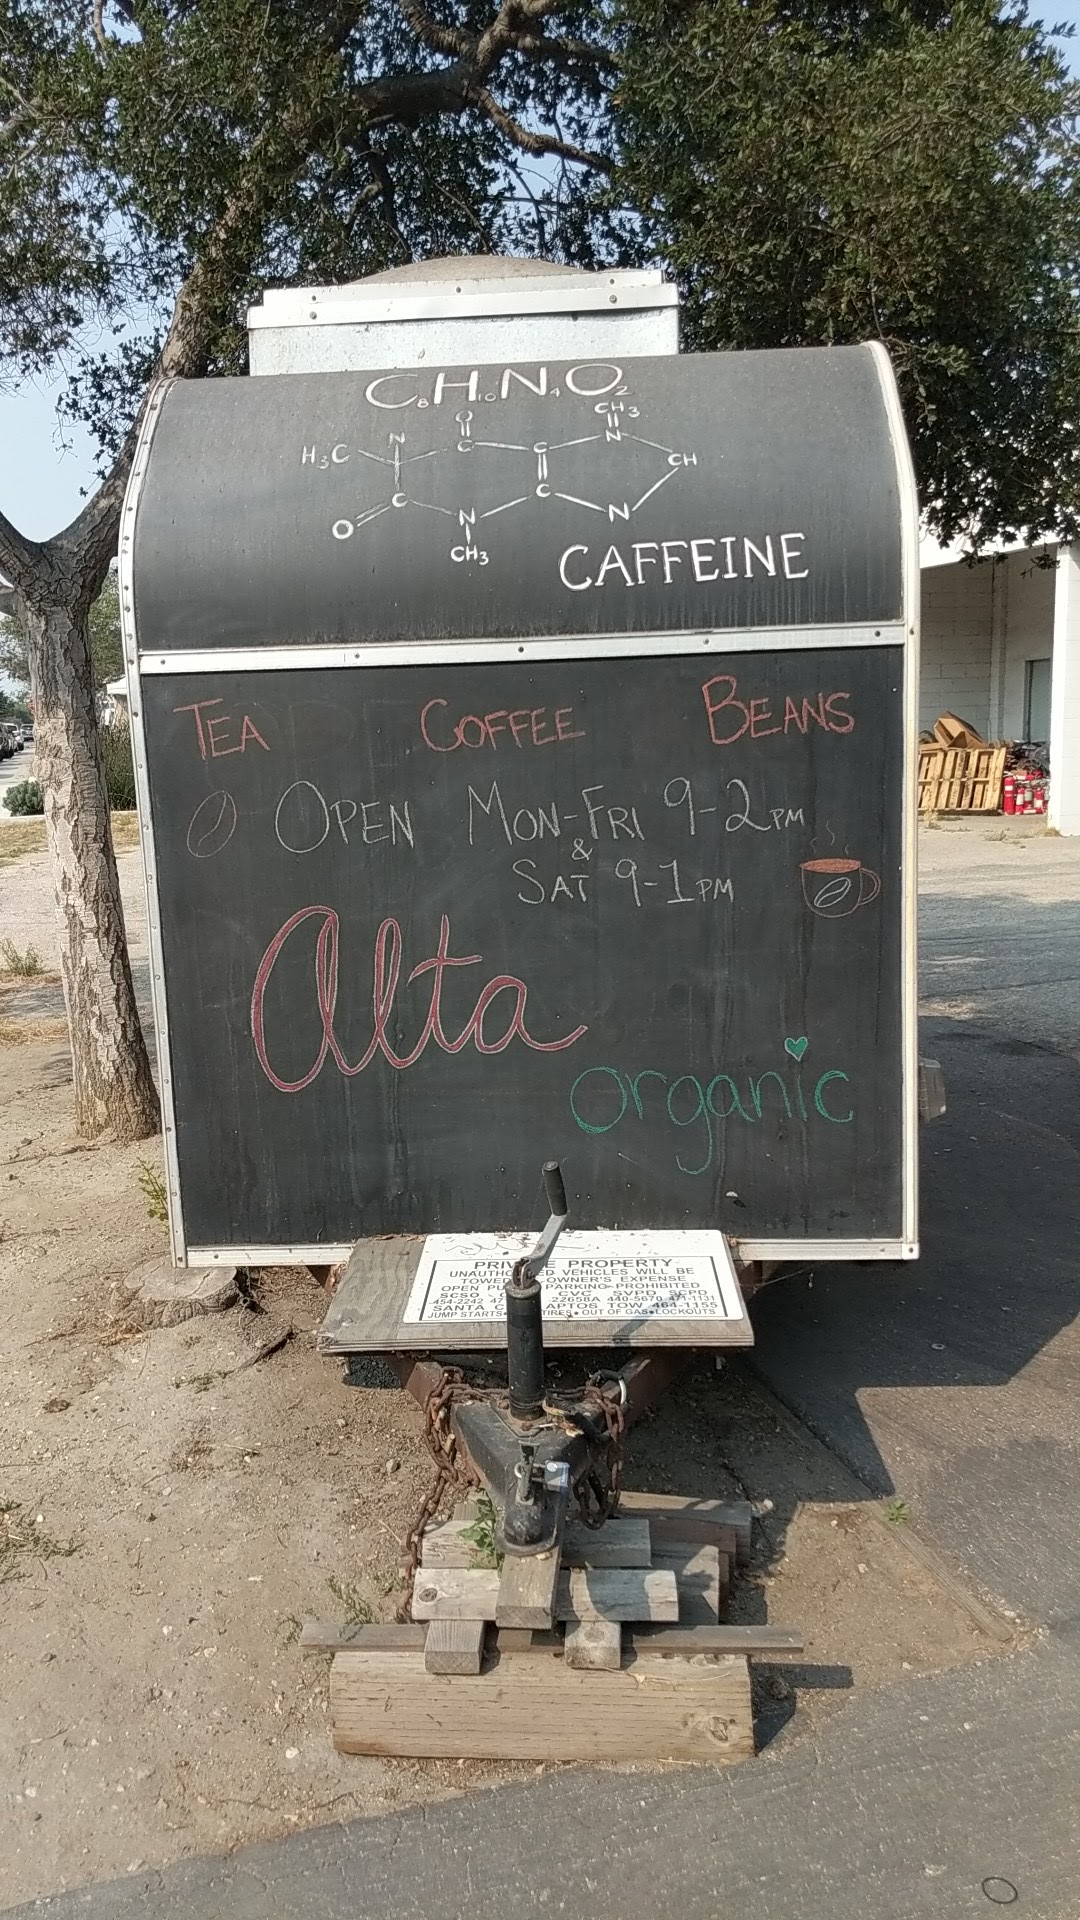 C₈H₁₀N₄O₂
CH₃
O
N
N
H₃C
C
C
CH
C
C
O
N
N
CH₃
CAFFEINE
TEA COFFEE BEANS
OPEN MON-FRI 9-2PM
&
SAT 9-1PM
Alta
organic
PRIVATE PROPERTY
UNAUTHORIZED VEHICLES WILL BE
TOWED OWNER'S EXPENSE
OPEN PARKING PROHIBITED
SCSO CVC SVPD SCPD
454-2242 47 22658A 440-5670 471-1131
SANTA APTOS TOW 464-1155
JUMP STARTS• TIRES•OUT OF GAS•LOCKOUTS